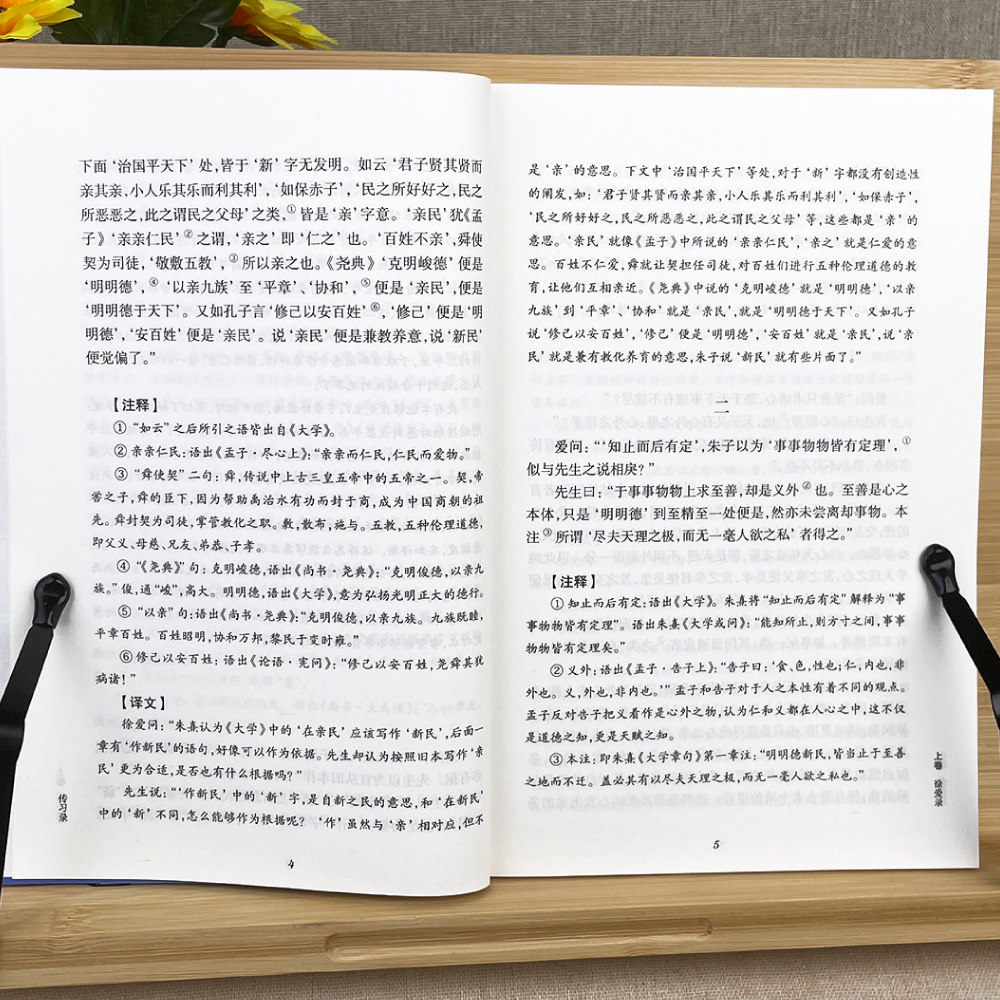 下面‘治国平天下’处，皆于‘新’字无发明。如云‘君子贤其贤而
亲其亲，小人乐其乐而利其利’，‘如保赤子’，‘民之所好好之，民之
所恶恶之，此之谓民之父母’之类，①皆是‘亲’字意。‘亲民’犹《孟
子》‘亲亲仁民’②之谓，‘亲之’即‘仁之’也。‘百姓不亲’，舜使
契为司徒，‘敬敷五教’，③所以亲之也。《尧典》‘克明峻德’便是
‘明明德’，④‘以亲九族’至‘平章’、‘协和’，⑤便是‘亲民’，便是
‘明明德于天下’。又如孔子言‘修己以安百姓’⑥，‘修己’便是‘明
明德’，‘安百姓’便是‘亲民’。说‘亲民’便是兼教养意，说‘新民’
便觉偏了。”
【注释】
①“如云”之后所引之语皆出自《大学》。
②亲亲仁民：语出《孟子·尽心上》：“亲亲而仁民，仁民而爱物。”
③“舜使契”二句：舜，传说中上古三皇五帝中的五帝之一。契，帝
喾之子，舜的臣下，因为帮助禹治水有功而封于商，成为中国商朝的祖
先。舜封契为司徒，掌管教化之职。敷，散布，施与。五教，五种伦理道德，
即父义、母慈、兄友、弟恭、子孝。
④“《尧典》”句：克明峻德，语出《尚书·尧典》：“克明俊德，以亲九
族。”俊，通“峻”，高大。明明德，语出《大学》，意为弘扬光明正大的德行。
⑤“以亲”句：语出《尚书·尧典》：“克明俊德，以亲九族。九族既睦，
平章百姓。百姓昭明，协和万邦，黎民于变时雍。”
⑥修己以安百姓：语出《论语·宪问》：“修己以安百姓，尧舜其犹
病诸！”
【译文】
徐爱问：“朱熹认为《大学》中的‘在亲民’应该写作‘新民’，后面一
章有‘作新民’的语句，好像可以作为依据。先生却认为按照旧本写作‘亲
民’更为合适，是否也有什么根据吗？”
先生说：“‘作新民’中的‘新’字，是自新之民的意思，和‘在新民’
中的‘新’不同，怎么能够作为根据呢？‘作’虽然与‘亲’相对应，但不
上卷 传习录
4
是‘亲’的意思。下文中‘治国平天下’等处，对于‘新’字都没有创造性
的阐发，如：‘君子贤其贤而亲其亲，小人乐其乐而利其利’，‘如保赤子’，
‘民之所好好之，民之所恶恶之，此之谓民之父母’等，这些都是‘亲’的
意思。‘亲民’就像《孟子》中所说的‘亲亲仁民’，‘亲之’就是仁爱的意
思。百姓不仁爱，舜就让契担任司徒，对百姓们进行五种伦理道德的教
育，让他们互相亲近。《尧典》中说的‘克明峻德’就是‘明明德’，‘以亲
九族’到‘平章’、‘协和’就是‘亲民’，就是‘明明德于天下’。又如孔子
说‘修己以安百姓’，‘修己’便是‘明明德’，‘安百姓’就是‘亲民’，说‘亲
民’就是兼有教化养育的意思，朱子说‘新民’就有些片面了。”
二
爱问：“‘知止而后有定’，朱子以为‘事事物物皆有定理’，①
似与先生之说相戾？”
先生曰：“于事事物物上求至善，却是义外②也。至善是心之
本体，只是‘明明德’到至精至一处便是，然亦未尝离却事物。本
注③所谓‘尽夫天理之极，而无一毫人欲之私’者得之。”
【注释】
①知止而后有定：语出《大学》。朱熹将“知止而后有定”解释为“事
事物物皆有定理”。语出朱熹《大学或问》：“能知所止，则方寸之间，事事
物物皆有定理矣。”
②义外：语出《孟子·告子上》：“告子曰：‘食、色，性也；仁，内也，非
外也。义，外也，非内也。’”孟子和告子对于人之本性有着不同的观点。
孟子反对告子把义看作是心外之物，认为仁和义都在人心之中，这不仅
是道德之知，更是天赋之知。
③本注：即朱熹《大学章句》第一章注：“明明德新民，皆当止于至善
之地而不迁。盖必其有以尽夫天理之极，而无一毫人欲之私也。”
上卷 徐爱录
5